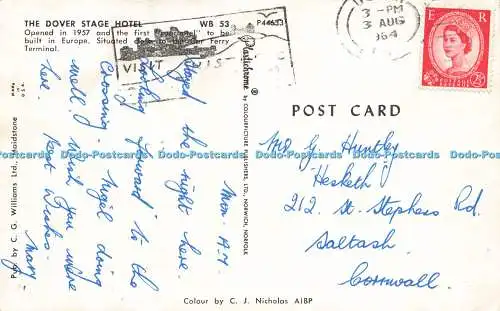 THE DOVER STAGE HOTEL
WB 53
P44633
Opened in 1957 and the first
to be
built in Europe. Situated
Ferry
Terminal.
VISIT
3 - PM
3 AUG
1964
E R
POSTAGE REVENUE
2½D
MADE
U.S.A.
Pub. by C. G. Williams Ltd., Maidstone
Plastichrome ®
by COLOURPICTURE PUBLISHERS, LTD., NORWICH, NORFOLK
POST CARD
Mon. A.M.
Stayed the night here.
Looking forward to the
Crossing. Nigel doing
well, Wish you were
here. Best Wishes.
Mary.
Mrs G. Huntley
Hesketh
212 St. Stephens Rd.
Saltash
Cornwall.
Colour by C. J. Nicholas AIBP
Dodo-Postcards Dodo-Postcards Dodo-Postcards Dodo-Postcards Dodo-Postcards